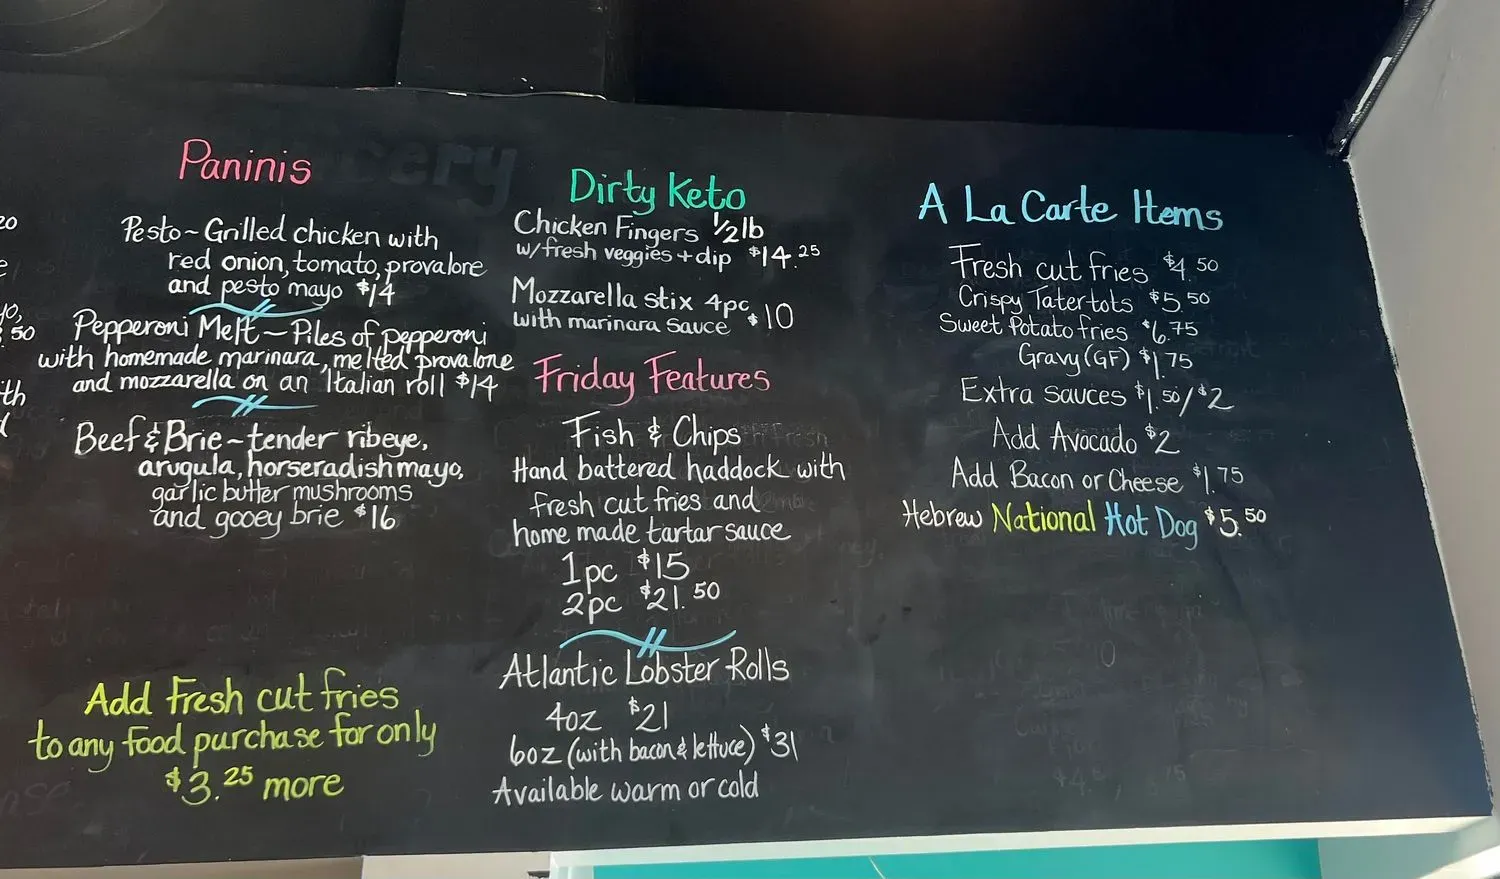 Paninis
Pesto~Grilled chicken with
red onion, tomato, provalore
and pesto mayo $14
Pepperoni Melt~Piles of pepperoni
with homemade marinara, melted provalone
and mozzarella on an Italian roll $14
Beef & Brie~tender ribeye,
arugula, horseradish mayo,
garlic butter mushrooms
and gooey brie $16
Add Fresh cut fries
to any food purchase for only
$3.25 more
Dirty Keto
Chicken Fingers 1/2 lb
w/fresh veggies + dip $14.25
Mozzarella stix 4pc
with marinara sauce $10
Friday Features
Fish & Chips
Hand battered haddock with
fresh cut fries and
home made tartar sauce
1pc $15
2pc $21.50
Atlantic Lobster Rolls
4oz $21
6oz (with bacon & lettuce) $31
Available warm or cold
A La Carte Items
Fresh cut fries $4.50
Crispy Tatertots $5.50
Sweet Potato fries $6.75
Gravy (GF) $1.75
Extra sauces $1.50/$2
Add Avocado $2
Add Bacon or Cheese $1.75
Hebrew National Hot Dog $5.50